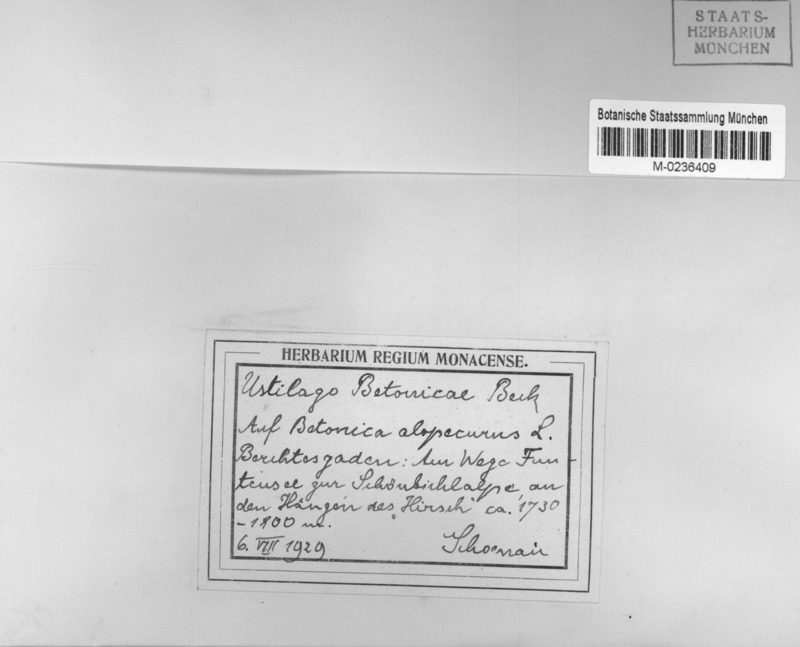 STAATS-
HERBARIUM
MÜNCHEN
Botanische Staatssammlung München
M-0236409
HERBARIUM REGIUM MONACENSE.
Ustilago Betonicae Beck
Auf Betonica alopecurus L.
Berchtesgaden: Am Wege Fun-
tensee zur Schönbichlalpe an
den Hängen des "Hirsch" ca. 1730
- 1800 m.
6. VIII 1929
Schoenau